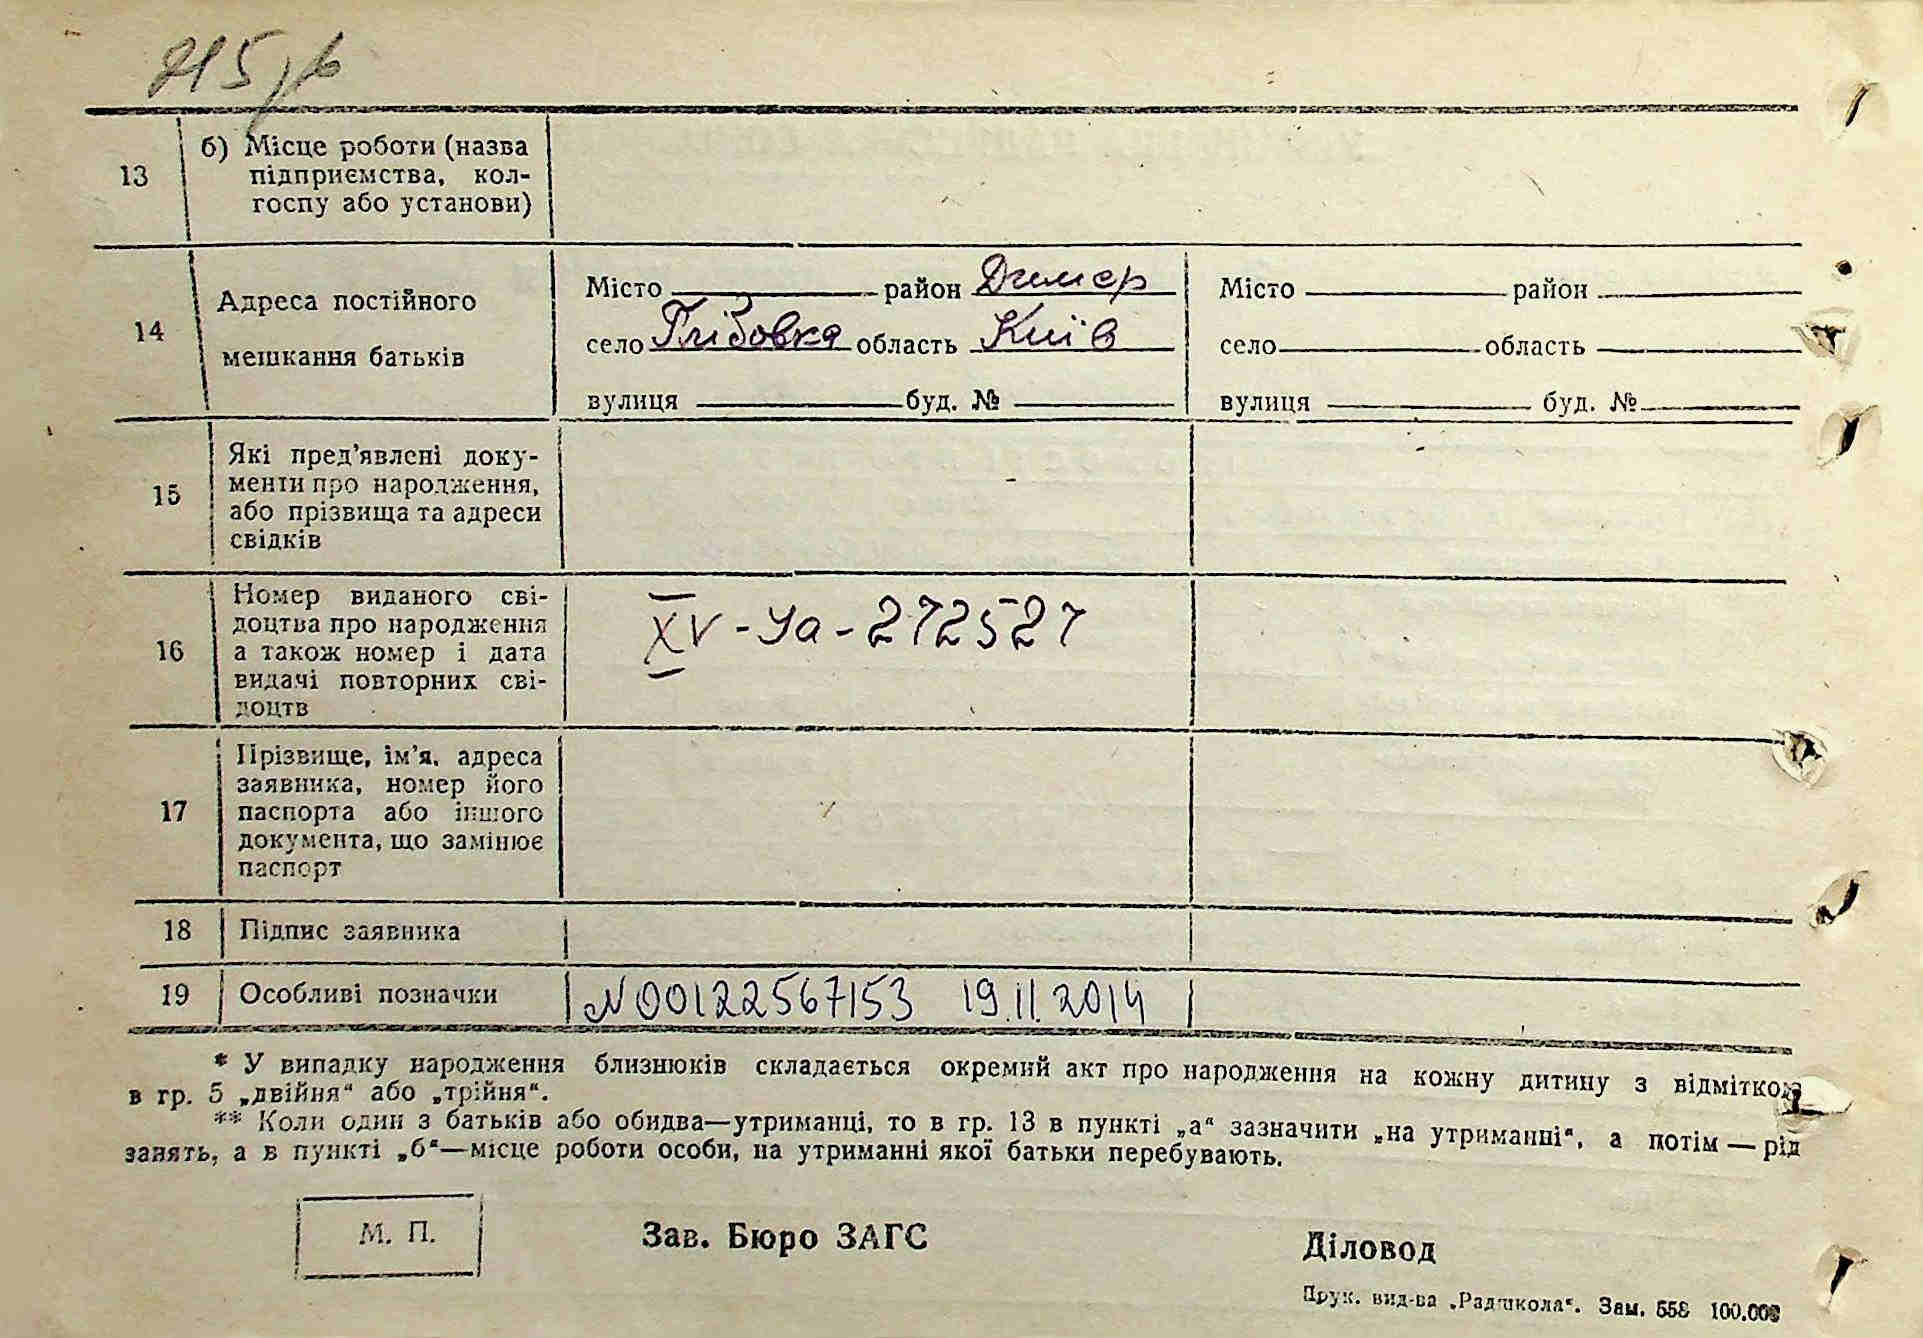 13 б) Місце роботи (назва
підприємства, кол-
госпу або установи)
14 Адреса постійного
мешкання батьків
Місто район Димер
село Глібовка область Київ
вулиця буд. №
Місто район
село область
вулиця буд. №
15 Які пред’явлені доку-
менти про народження,
або прізвища та адреси
свідків
16 Номер виданого сві-
доцтва про народження
а також номер і дата
видачі повторних сві-
доцтв
XV-Уа-272527
17 Прізвище, ім’я, адреса
заявника, номер його
паспорта або іншого
документа, що замінює
паспорт
18 Підпис заявника
19 Особливі позначки N00122567153 19.11.2014
* У випадку народження близнюків складається окремий акт про народження на кожну дитину з відміткою
в гр. 5 „двійня“ або „трійня“.
** Коли один з батьків або обидва—утриманці, то в гр. 13 в пункті „а“ зазначити „на утриманні“, а потім — рід
занять, а в пункті „б“—місце роботи особи, на утриманні якої батьки перебувають.
М. П.
Зав. Бюро ЗАГС
Діловод
Прук. вид-ва „Радшкола“. Зам. 558 100.000